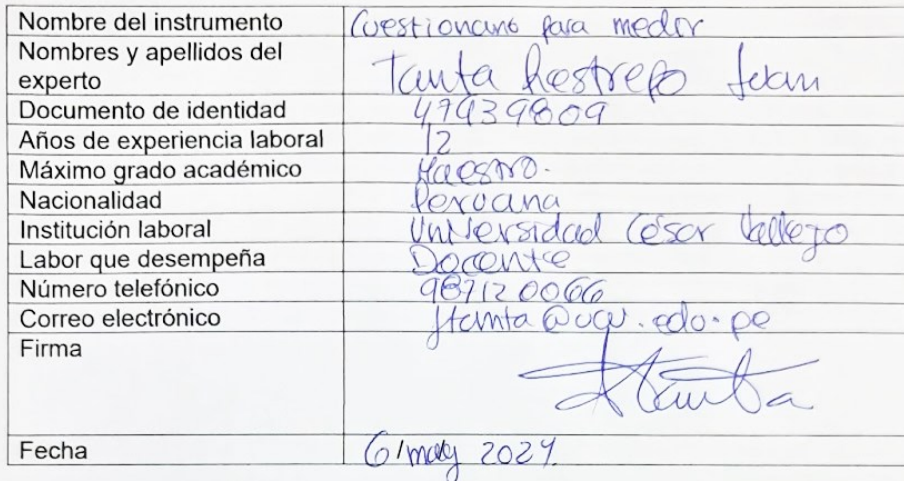 Nombre del instrumento Cuestionario para medir
Nombres y apellidos del
experto Tanta Restrepo Juan
Documento de identidad 47939809
Años de experiencia laboral 12
Máximo grado académico Maestro.
Nacionalidad Peruana
Institución laboral Universidad César Vallejo
Labor que desempeña Docente
Número telefónico 987120066
Correo electrónico jtanta@ucv.edu.pe
Firma JTanta
Fecha 6/may 2024